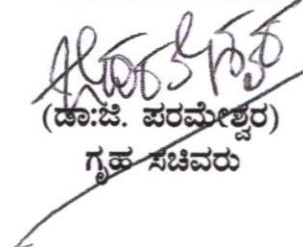 (ಡಾ:ಜಿ. ಪರಮೇಶ್ವರ)
ಗೃಹ ಸಚಿವರು